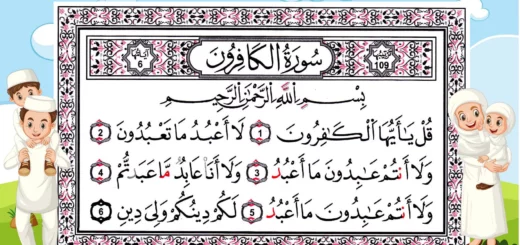 آياتها 6 سُورَةُ الكَافِرُونَ ترتيبها 109
بِسْمِ اللَّهِ الرَّحْمَٰنِ الرَّحِيمِ
قُلْ يَا أَيُّهَا الْكَٰفِرُونَ 1 لَا أَعْبُدُ مَا تَعْبُدُونَ 2
وَلَا أَنتُمْ عَٰبِدُونَ مَا أَعْبُدُ 3 وَلَا أَنَا عَابِدٌ مَّا عَبَدتُّمْ 4
وَلَا أَنتُمْ عَٰبِدُونَ مَا أَعْبُدُ 5 لَكُمْ دِينُكُمْ وَلِيَ دِينِ 6